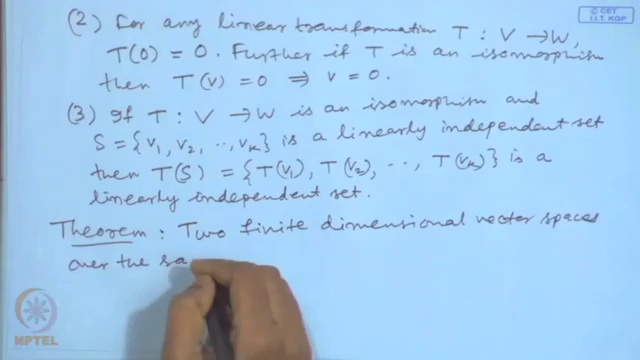 © CET
I.I.T. KGP
(2) For any linear transformation T : V → W,
T(0) = 0. Further if T is an isomorphism
then T(v) = 0 ⇒ v = 0.
(3) If T : V → W is an isomorphism and
S = {v₁, v₂, .., vₖ} is a linearly independent set
then T(S) = {T(v₁), T(v₂), .., T(vₖ)} is a
linearly independent set.
Theorem : Two finite dimensional vector spaces
over the sa
NPTEL